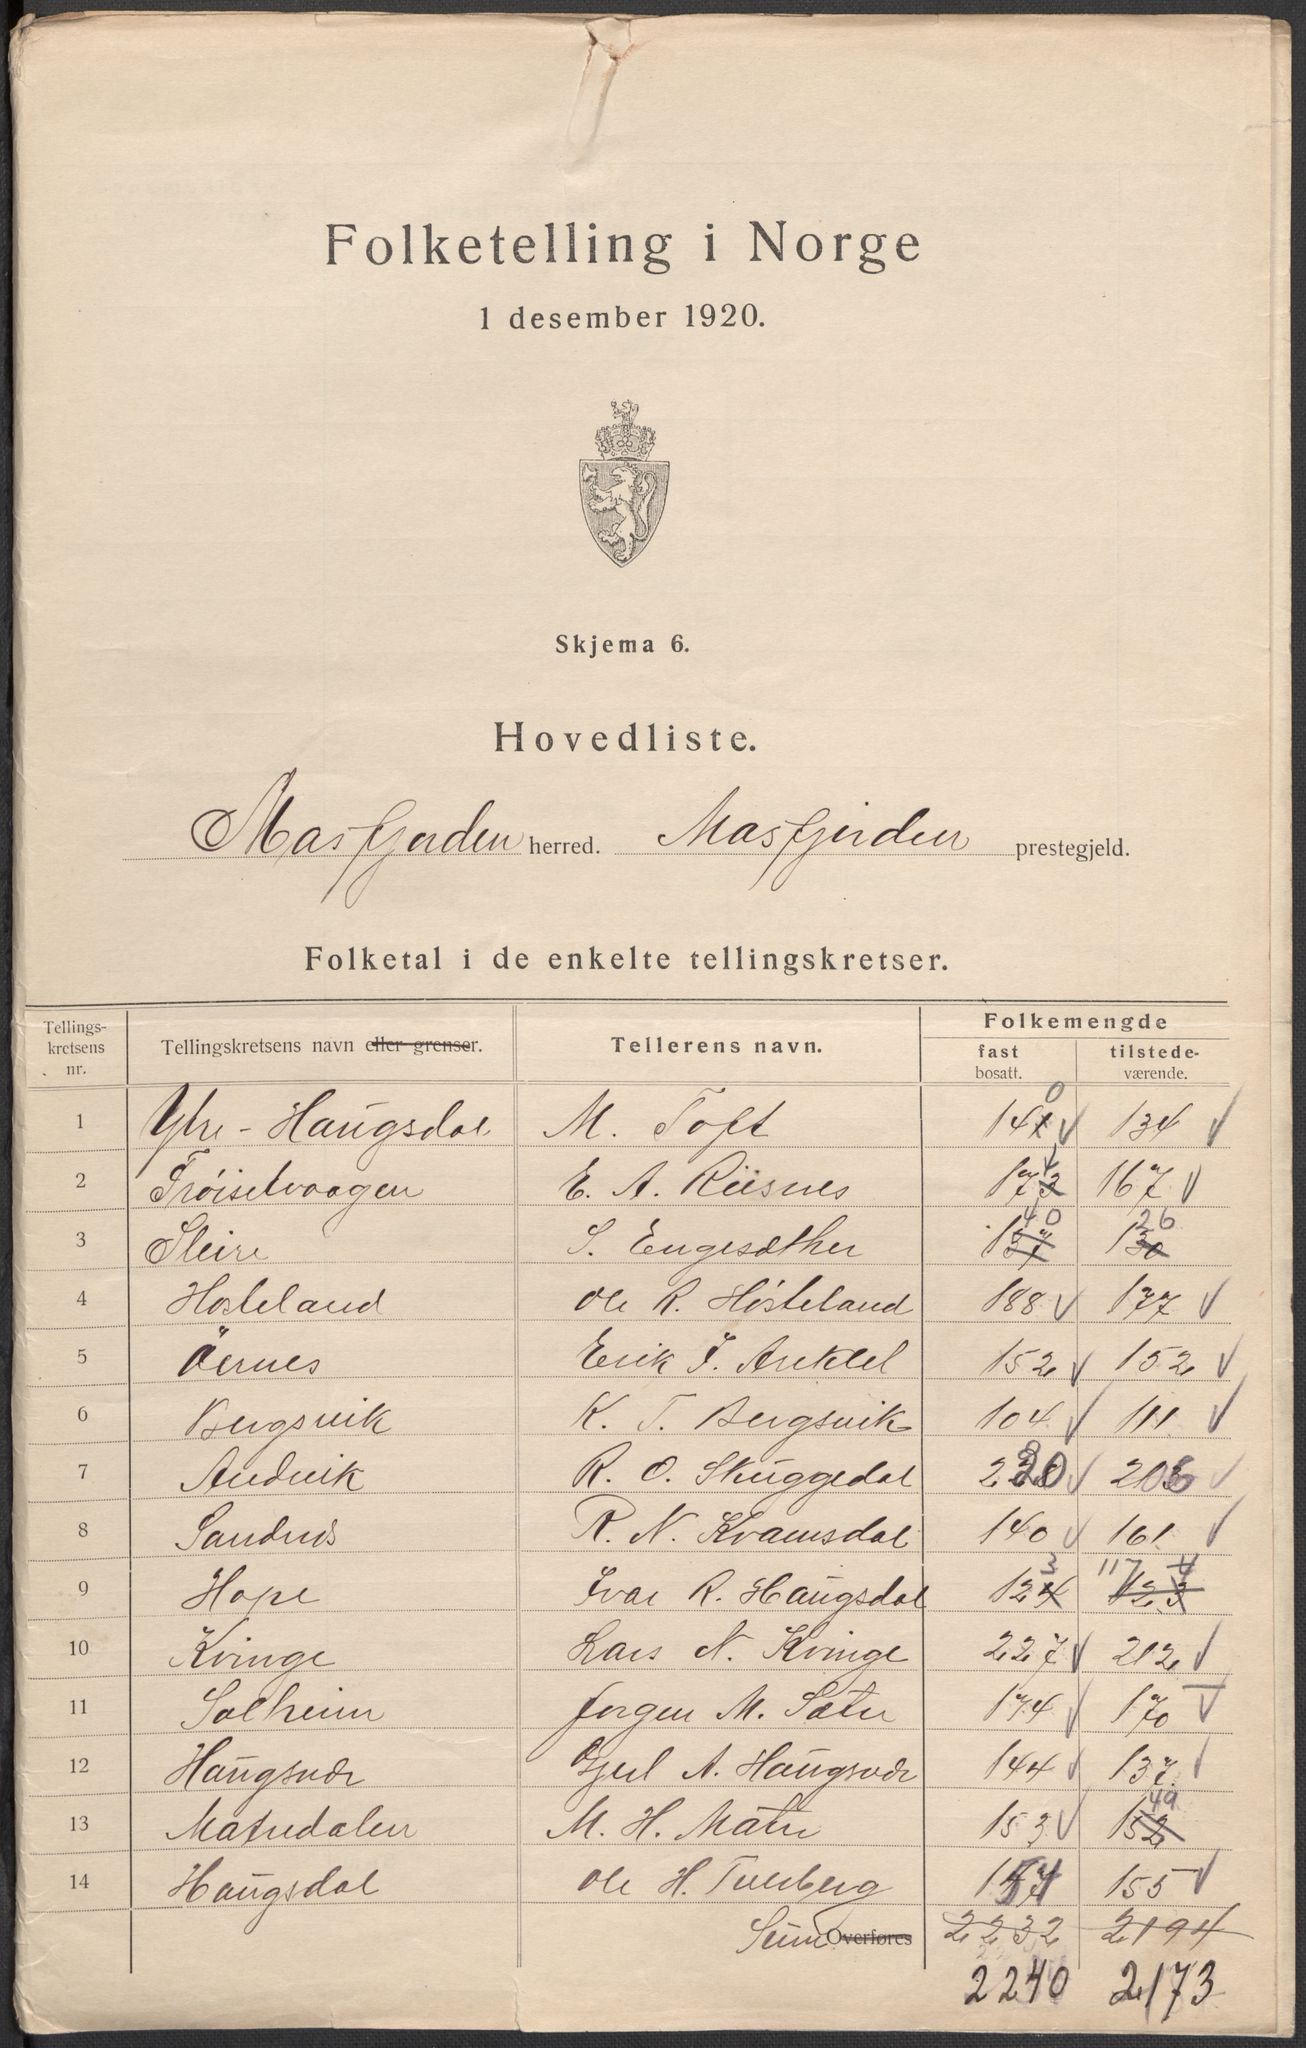 Folketelling i Norge
1 desember 1920.
Skjema 6.
Hovedliste.
Masfjorden herred. Masfjorden prestegjeld.
Folketal i de enkelte tellingskretser.
Tellings-kretsens nr. Tellingskretsens navn eller grenser. Tellerens navn. Folkemengde fast bosatt. tilstede-værende.
1 Ytre-Haugsdal M. Toft 140 134
2 Trøiselvaagen E. A. Riisnes 173 167
3 Sleire S. Engesæther 140 126
4 Hosteland Ole R. Hosteland 188 177
5 Øernes Erik J. 152 152
6 Bergsvik K. T. Bergsvik 104 111
7 Andvik R. O. Skuggedal 220 206
8 Sandnes R. N. Kvamsdal 140 161
9 Hope Ivar R. Haugsdal 123 117
10 Kvinge Lars N. Kvinge 227 212
11 Solheim Jørgen M. Sætre 174 170
12 Haugsvær A. Haugsvær 144 137
13 Matredalen M. H. Matre 153 149
14 Haugsdal Ole H. Tverberg 155
Sum Overføres 2232 2194
2240 2173